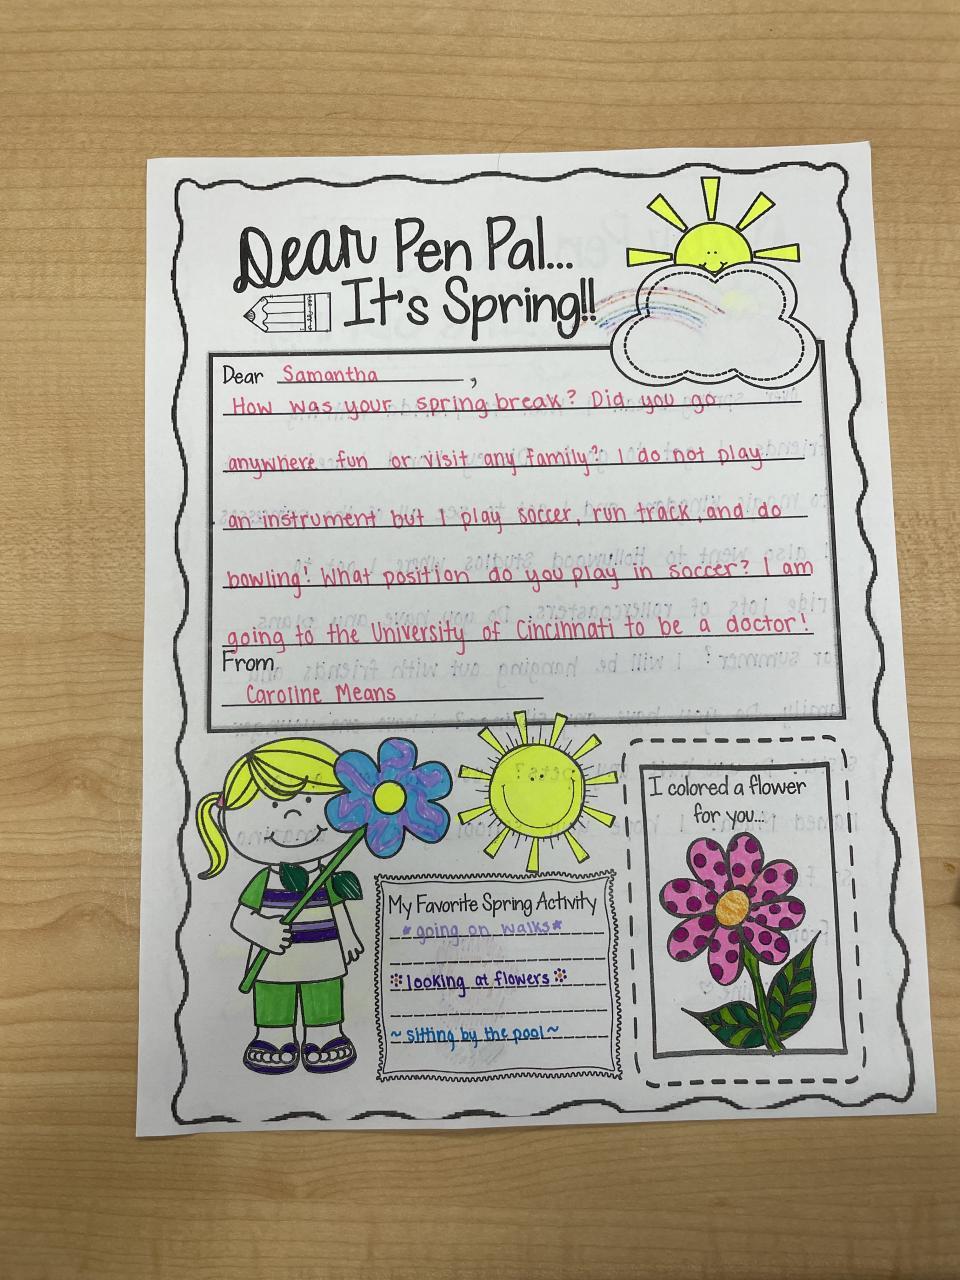 Dear Pen Pal...
It's Spring!!
Dear Samantha,
How was your spring break? Did you go
anywhere fun or visit any family? I do not play
an instrument but I play soccer, run track, and do
bowling! What position do you play in soccer? I am
going to the University of Cincinnati to be a doctor!
From
Caroline Means
My Favorite Spring Activity
*going on walks*
looking at flowers
~ sitting by the pool ~
I colored a flower
for you...